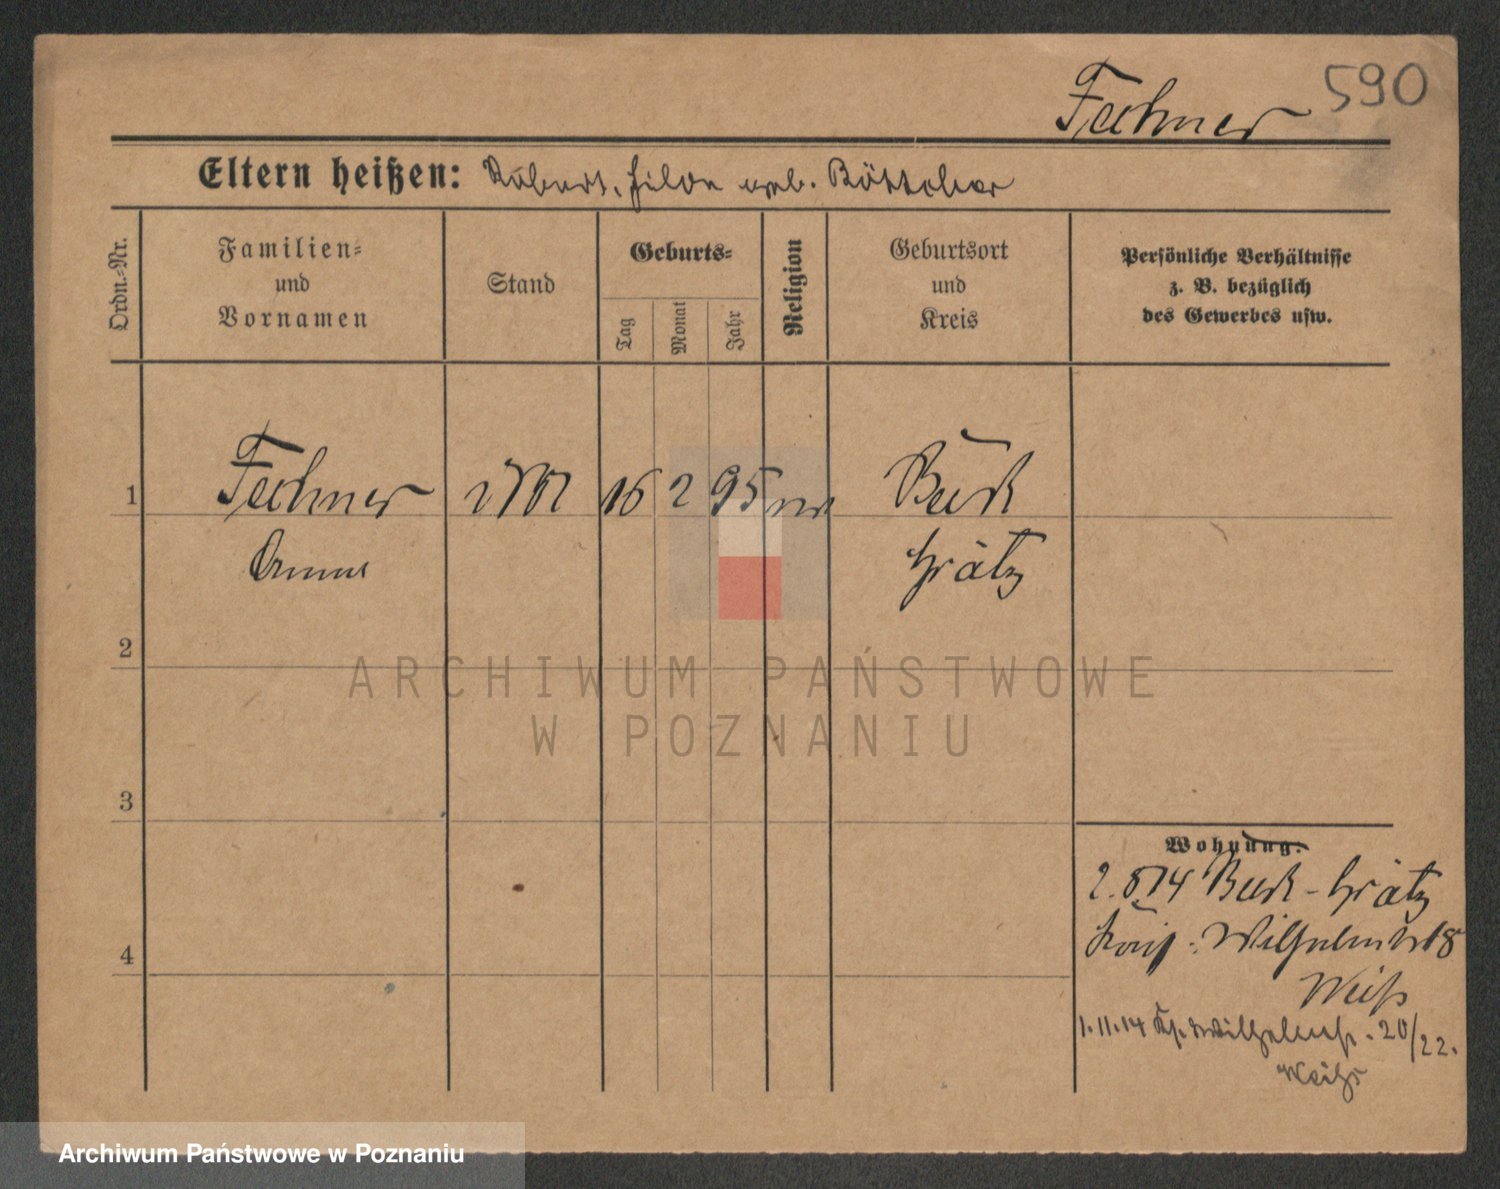 590
Fechner
Eltern heißen: Robert, Hilda geb. Böttcher
Ordn.-Nr.
Familien- und Vornamen
Stand
Geburts-
Tag
Monat
Jahr
Religion
Geburtsort und Kreis
Persönliche Verhältnisse z. B. bezüglich des Gewerbes usw.
1 Fechner 16 2 95 Buk
Anna Grätz
2
3
4
Wohnung:
2.8.14 Buk - Grätz
Wilhelmstr 18
Weiß
1.11.14 Kg. Wilhelmstr. 20/22.
Weiß
ARCHIWUM PAŃSTWOWE
W POZNANIU
Archiwum Państwowe w Poznaniu